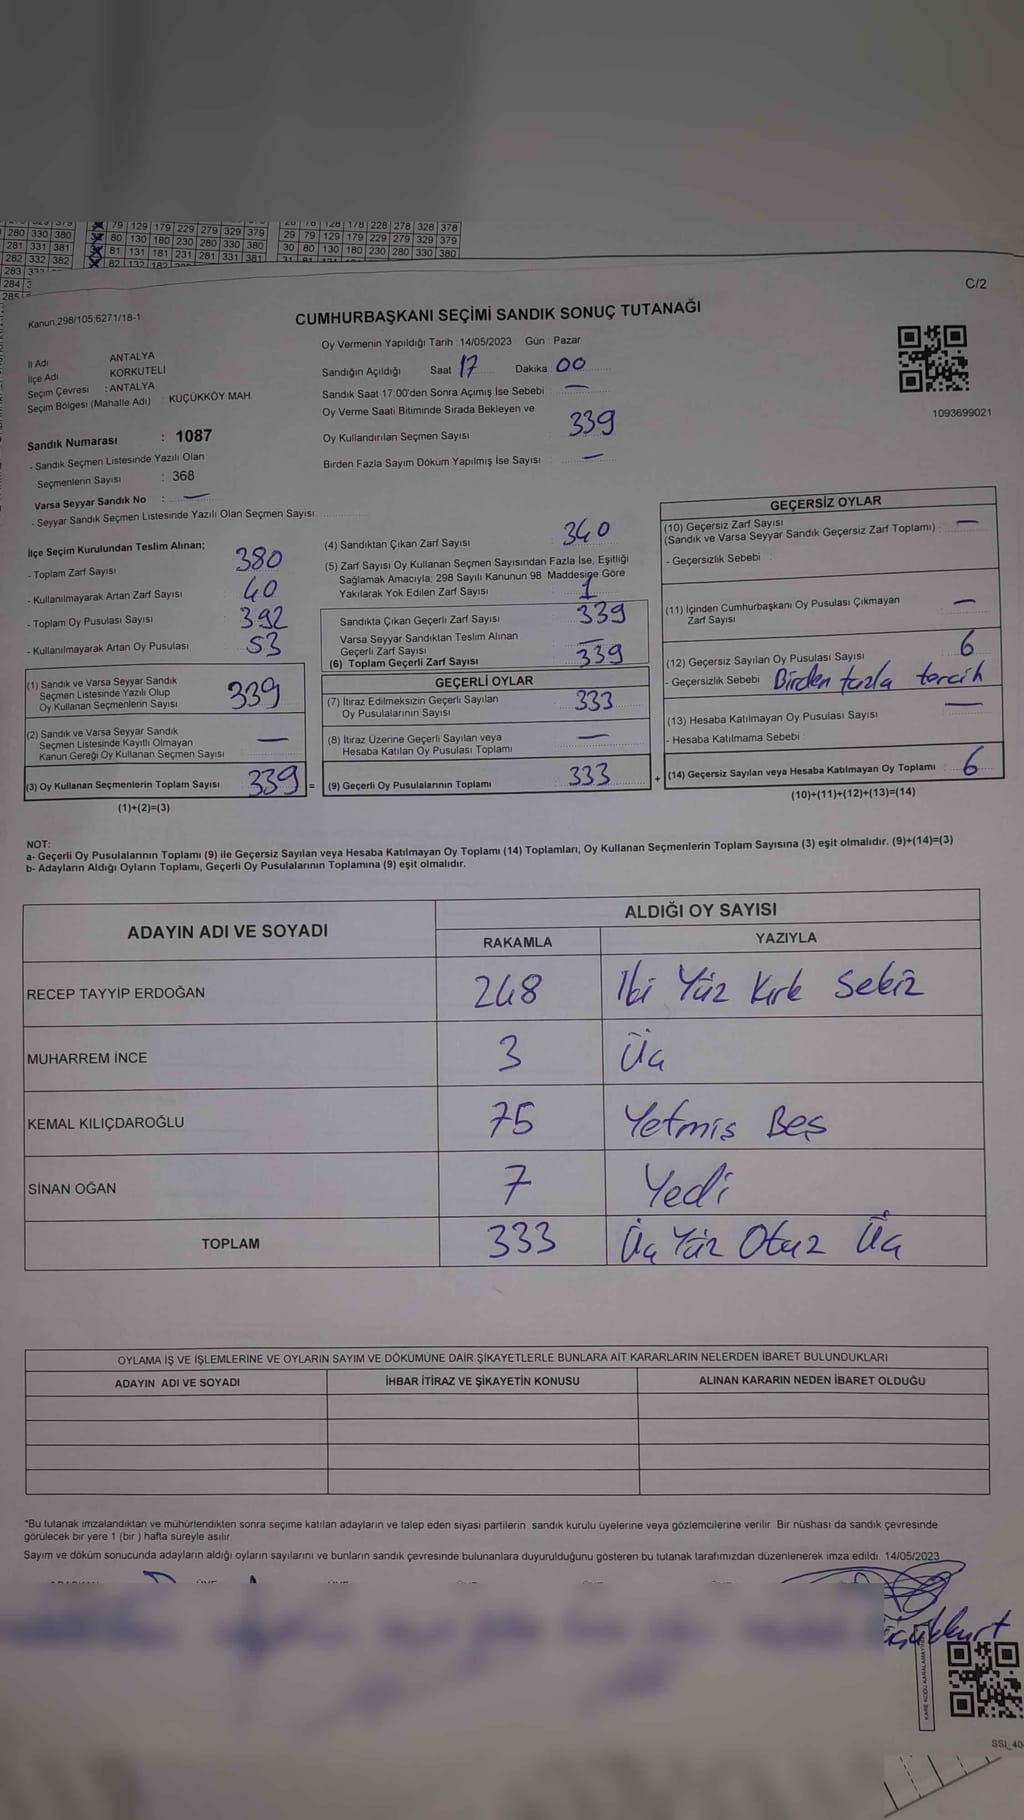 79 129 179 229 279 329 379
280 330 380
80 130 180 230 280 330 380
281 331 381
81 131 181 231 281 331 381
282 332 382
78 128 178 228 278 328 378
29 79 129 179 229 279 329 379
30 80 130 180 230 280 330 380
C/2
Kanun;298/105;6271/18-1
CUMHURBAŞKANI SEÇİMİ SANDIK SONUÇ TUTANAĞI
Oy Vermenin Yapıldığı Tarih :14/05/2023 Gün : Pazar
İl Adı : ANTALYA
İlçe Adı : KORKUTELİ
Seçim Çevresi : ANTALYA
Seçim Bölgesi (Mahalle Adı) : KÜÇÜKKÖY MAH.
Sandığın Açıldığı Saat 17 Dakika 00
Sandık Saat 17:00'den Sonra Açımış İse Sebebi : —
Oy Verme Saati Bitiminde Sırada Bekleyen ve
Oy Kullandırılan Seçmen Sayısı : 339
Birden Fazla Sayım Döküm Yapılmış İse Sayısı : —
1093699021
Sandık Numarası : 1087
- Sandık Seçmen Listesinde Yazılı Olan
Seçmenlerin Sayısı : 368
Varsa Seyyar Sandık No : —
- Seyyar Sandık Seçmen Listesinde Yazılı Olan Seçmen Sayısı:
İlçe Seçim Kurulundan Teslim Alınan;
- Toplam Zarf Sayısı 380
- Kullanılmayarak Artan Zarf Sayısı : 40
- Toplam Oy Pusulası Sayısı : 392
- Kullanılmayarak Artan Oy Pusulası : 53
(1) Sandık ve Varsa Seyyar Sandık
Seçmen Listesinde Yazılı Olup
Oy Kullanan Seçmenlerin Sayısı : 339
(2) Sandık ve Varsa Seyyar Sandık
Seçmen Listesinde Kayıtlı Olmayan
Kanun Gereği Oy Kullanan Seçmen Sayısı : —
(3) Oy Kullanan Seçmenlerin Toplam Sayısı : 339 =
(1)+(2)=(3)
(4) Sandıktan Çıkan Zarf Sayısı : 340
(5) Zarf Sayısı Oy Kullanan Seçmen Sayısından Fazla İse, Eşitliği
Sağlamak Amacıyla; 298 Sayılı Kanunun 98. Maddesine Göre
Yakılarak Yok Edilen Zarf Sayısı : 1
Sandıkta Çıkan Geçerli Zarf Sayısı : 339
Varsa Seyyar Sandıktan Teslim Alınan
Geçerli Zarf Sayısı : —
(6) Toplam Geçerli Zarf Sayısı : 339
GEÇERLİ OYLAR
(7) İtiraz Edilmeksizin Geçerli Sayılan
Oy Pusulalarının Sayısı : 333
(8) İtiraz Üzerine Geçerli Sayılan veya
Hesaba Katılan Oy Pusulası Toplamı : —
(9) Geçerli Oy Pusulalarının Toplamı : 333 +
GEÇERSİZ OYLAR
(10) Geçersiz Zarf Sayısı
(Sandık ve Varsa Seyyar Sandık Geçersiz Zarf Toplamı) : —
- Geçersizlik Sebebi :
(11) İçinden Cumhurbaşkanı Oy Pusulası Çıkmayan
Zarf Sayısı : —
(12) Geçersiz Sayılan Oy Pusulası Sayısı : 6
- Geçersizlik Sebebi : Birden fazla tercih
(13) Hesaba Katılmayan Oy Pusulası Sayısı : —
- Hesaba Katılmama Sebebi :
(14) Geçersiz Sayılan veya Hesaba Katılmayan Oy Toplamı : 6
(10)+(11)+(12)+(13)=(14)
NOT:
a- Geçerli Oy Pusulalarının Toplamı (9) ile Geçersiz Sayılan veya Hesaba Katılmayan Oy Toplamı (14) Toplamları, Oy Kullanan Seçmenlerin Toplam Sayısına (3) eşit olmalıdır. (9)+(14)=(3)
b- Adayların Aldığı Oyların Toplamı, Geçerli Oy Pusulalarının Toplamına (9) eşit olmalıdır.
ADAYIN ADI VE SOYADI
ALDIĞI OY SAYISI
RAKAMLA YAZIYLA
RECEP TAYYİP ERDOĞAN 248 İki Yüz Kırk Sekiz
MUHARREM İNCE 3 Üç
KEMAL KILIÇDAROĞLU 75 Yetmiş Beş
SİNAN OĞAN 7 Yedi
TOPLAM 333 Üç Yüz Otuz Üç
OYLAMA İŞ VE İŞLEMLERİNE VE OYLARIN SAYIM VE DÖKÜMÜNE DAİR ŞİKAYETLERLE BUNLARA AİT KARARLARIN NELERDEN İBARET BULUNDUKLARI
ADAYIN ADI VE SOYADI İHBAR İTİRAZ VE ŞİKAYETİN KONUSU ALINAN KARARIN NEDEN İBARET OLDUĞU
*Bu tutanak imzalandıktan ve mühürlendikten sonra seçime katılan adayların ve talep eden siyasi partilerin sandık kurulu üyelerine veya gözlemcilerine verilir. Bir nüshası da sandık çevresinde
görülecek bir yere 1 (bir ) hafta süreyle asılır.
Sayım ve döküm sonucunda adayların aldığı oyların sayılarını ve bunların sandık çevresinde bulunanlara duyurulduğunu gösteren bu tutanak tarafımızdan düzenlenerek imza edildi. 14/05/2023